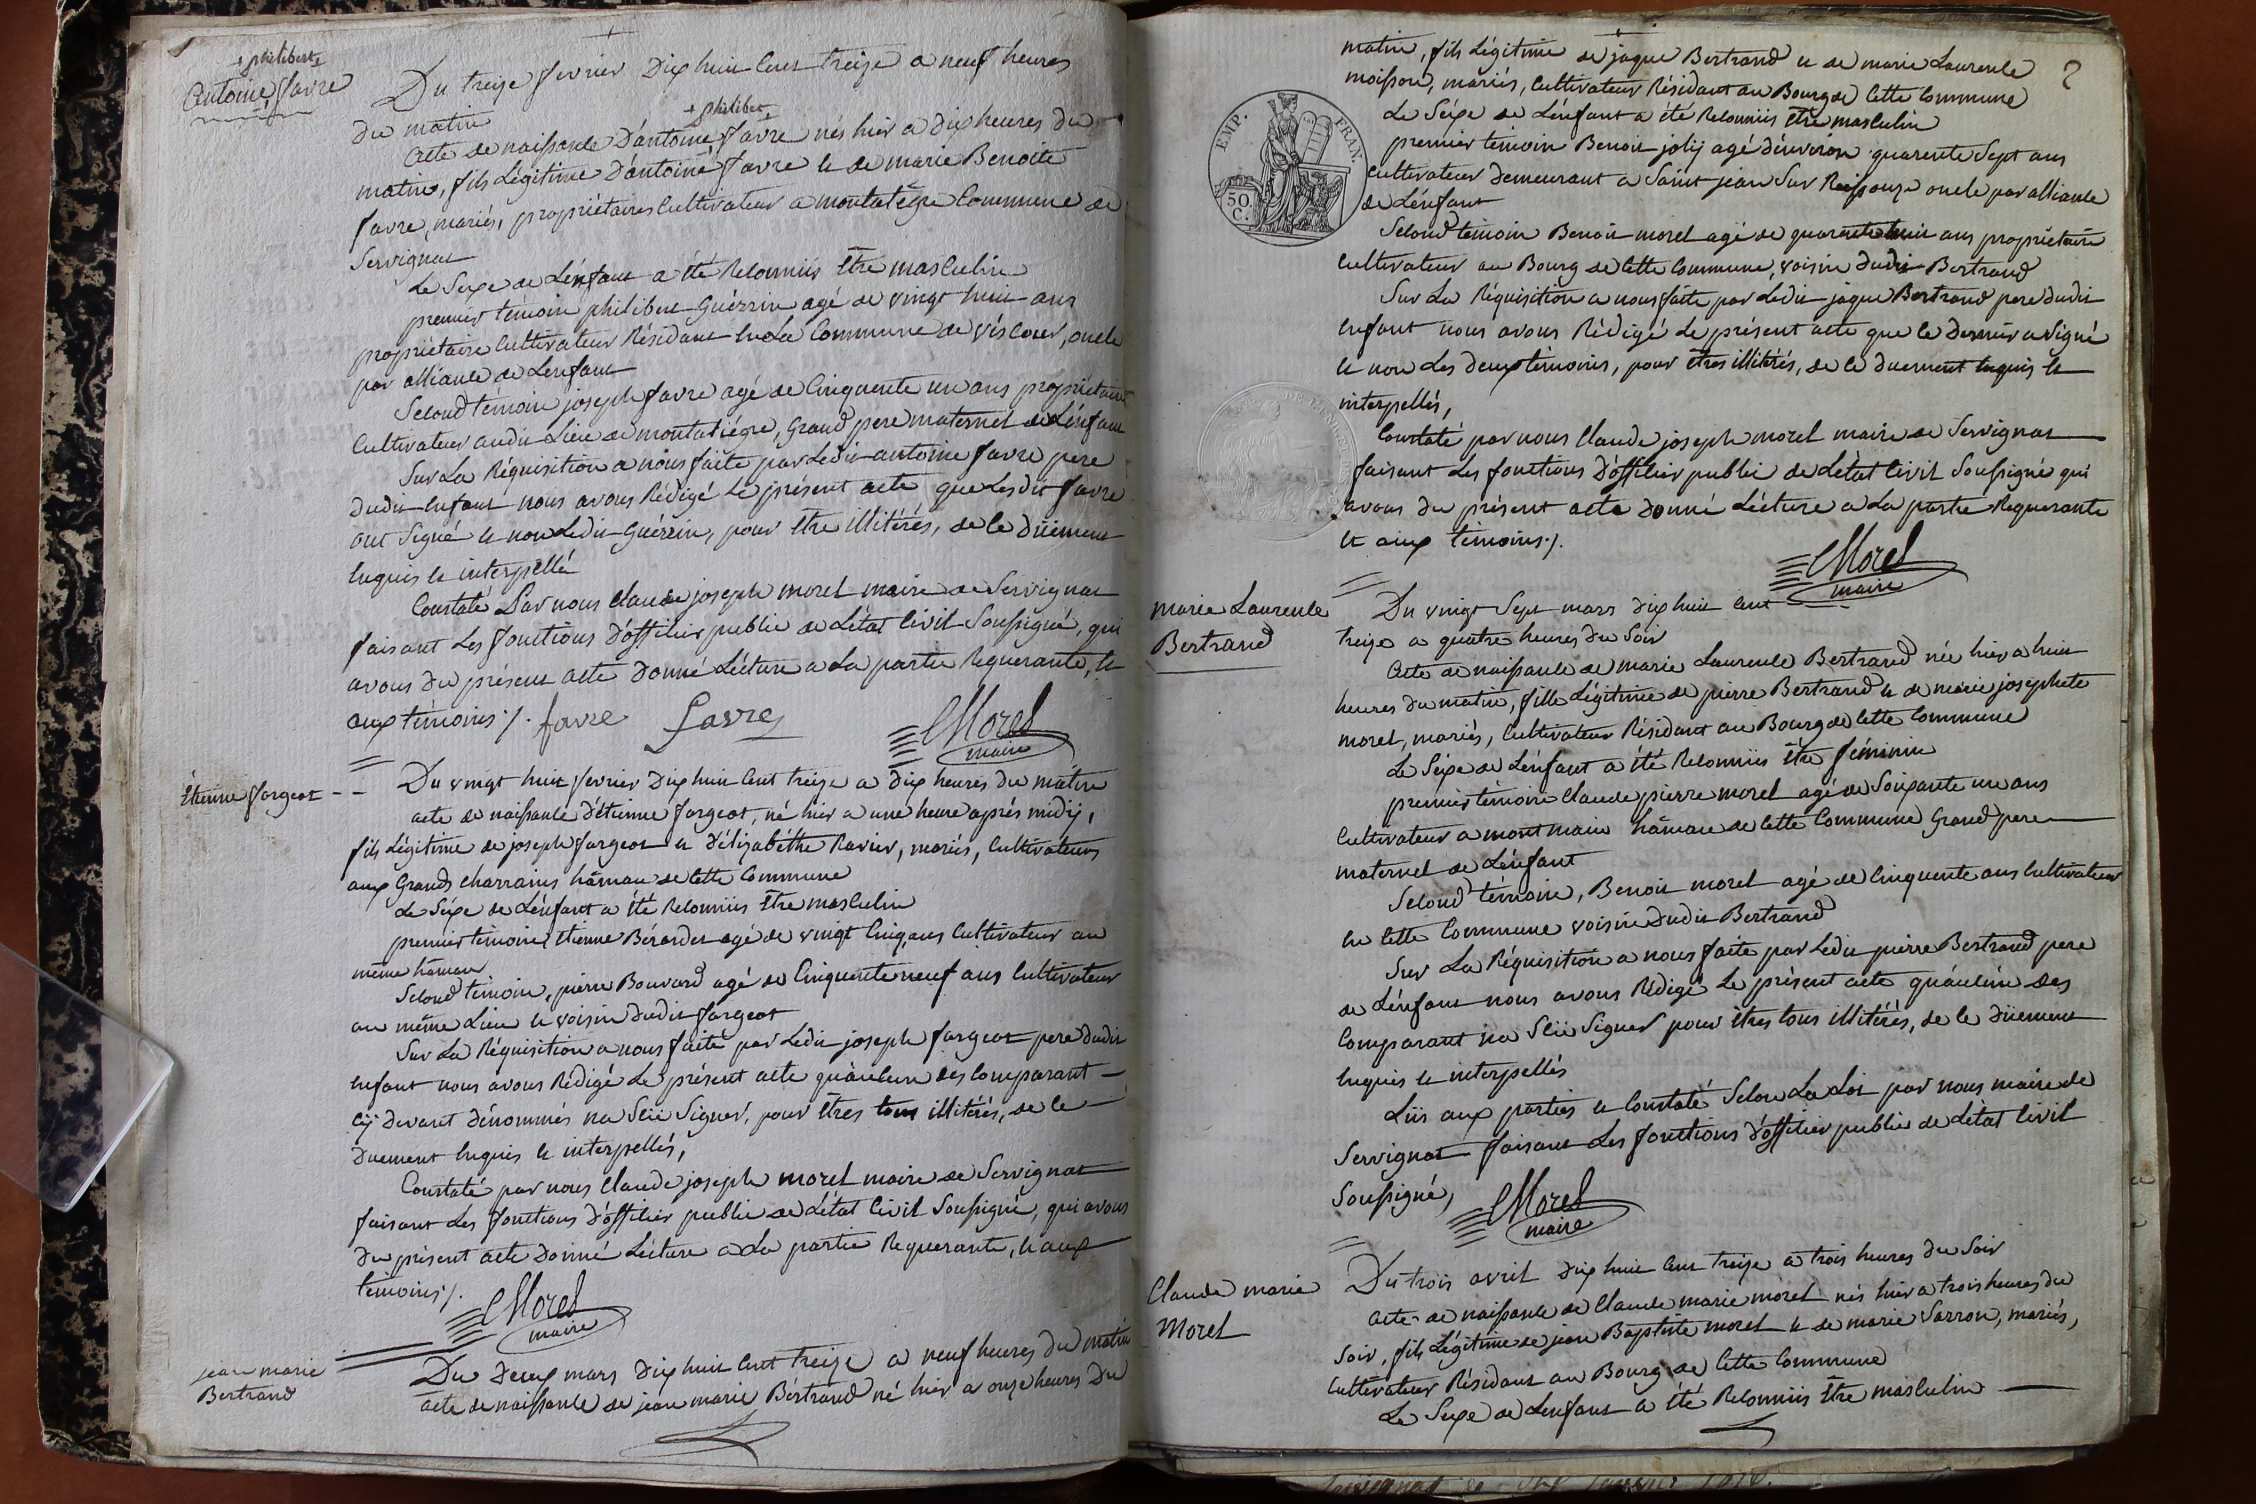 + philibert
Antoine, favre
Du treize fevrier Dix huit Cent treize a neuf heures
du matin
+ philibert
Acte de naissance D'antoine favre nés hier a dix heures du
matin, fils Légitime D'antoine favre et de marie Benoite
favre, mariés, propriétaires Cultivateur a montatégre Commune de
Servignat
Le Sexe de L'énfant a été Reconniis Etre masculin
premier témoin philibert Guérrin agé de vingt huit ans
propriétaire Cultivateur Résidant en La Commune de véscour, oncle
par alliance de L'enfant
Second témoin joseph favre agé de Cinquente un ans propriétaire
Cultivateur audit Lieu de montatiégre, Grand pere maternel de L'énfant
Sur La Réquisition a nous faite par Ledit antoine favre pere
dudit enfant nous avons Rédigé Le présent acte que Lesdit favre
ont Signé et non Ledit Guérrin, pour Etre illitérés, de ce düement
enquis et interpellé
Constaté Par nous Claude joseph morel maire de Servignat
faisant Les fonctions D'officier public de L'état Civil Soussigné, qui
avons du présent acte Donné Lécture a La partie Requerante, et
aux témoins ./. favre favre
CMorel
maire
Étienne fargeot - - Du vingt huit fevrier Dix huit Cent treize a dix heures du matin
acte de naissance d'étienne fargeot, né hier a une heure aprés midij,
fils Légitime de joseph fargeot et d'élizabéthe Ravier, mariés, Cultivateurs
aux Grands charrains hâmau de Cette Commune
Le Séxe de L'énfant a été Reconniis Etre masculin
premier témoin, étienne Bérardet agé de vingt Cinq ans Cultivateur au
même hâmau
Second témoin, pierre Bouvard agé de Cinquente neuf ans Cultivateur
au même Lieu et voisin dudit fargeot
Sur La Réquisition a nous faite par Ledit joseph fargeot pere dudit
enfant nous avons Rédigé Le présent acte qu'aucun des Comparant
Cÿ devant dénommés na Scü Signer, pour Etres tous illitérés, de ce
duement enquis et interpellés,
Constaté par nous Claude joseph morel maire de Servignat
faisant Les fonctions D'officier public de L'état Civil Soussigné, qui avons
du présent acte Donné Lécture a La partie Requerante, et aux
témoins ./.
CMorel
maire
jean marie
Bertrand
Du Deux mars Dix huit Cent treize a neuf heures du matin
acte de naissance de jean marie Bértrand né hier a onze heures Du
2
matin, fils Légitime de jaque Bertrand et de marie Laurence
moisson, mariés, Cultivateur Résidant au Bourg de Cette Commune
EMP. FRAN.
50
C.
Le Séxe de L'énfant a été Reconniis Etre masculin
premier témoin Benoit jolij agé d'environ quarente Sept ans
Cultivateur demeurant a Saint jean Sur Reissouze oncle par alliance
de L'énfant
Second témoin Benoit morel agé de quarente huit ans propriétaire
Cultivateur au Bourg de Cette Commune, voisin dudit Bertrand
Sur La Réquisition a nous faite par Ledit jaque Bertrand pere dudit
enfant nous avons Rédigé Le présent acte que Ce dernier a Signé
et non Les deux témoins, pour Etres illitérés, de ce duement enquis et
interpellés,
Constaté par nous Claude joseph morel maire de Servignat
faisant Les fonctions D'officier public de L'état Civil Soussigné qui
avons du présent acte donné Lécture a La partie Requerante
et aux témoins ./.
CMorel
maire
marie Laurence
Bertrand
Du vingt Sept mars dix huit Cent
treize a quatre heures du Soir
Acte de naissance de marie Laurence Bertrand née hier a huit
heures du matin, fille Légitime de pierre Bertrand et de marie josephete
morel, mariés, Cultivateur Résidant au Bourg de Cette Commune
Le Séxe de L'énfant a été Reconniis être féminin
premier témoin Claude pierre morel agé de Soixante un ans
Cultivateur a mont main hâmau de Cette Commune Grand pere
maternel de L'énfant
Second témoin, Benoit morel agé de Cinquente ans Cultivateur
en Cette Commune voisin dudit Bertrand
Sur La Réquisition a nous faite par Ledit pierre Bertrand pere
de L'énfant nous avons Rédigé Le présent acte qu'aucun des
Comparant na Scü Signer pour êtres tous illitérés, de ce düement
enquis et interpellés
Lüs aux parties et Constaté Selon La Loi par nous maire de
Servignat faisant Les fonctions d'officier public de L'état Civil
Soussigné,
CMorel
maire
Claude marie
Morel
Du trois avril dix huit Cent treize a trois heures du Soir
Acte de naissance de Claude marie morel nés hier a trois heures du
Soir, fils Légitime de jean Baptiste morel et de marie Varron, mariés,
Cultivateur Résidant au Bourg de Cette Commune
Le Sexe de L'enfant a été Reconniis Etre masculin